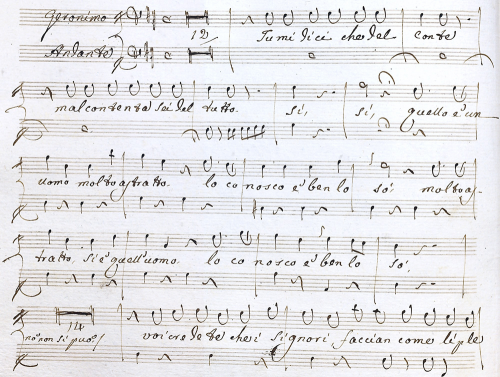 Geronimo 12 Tu mi dici che del conte
Andante
mal contenta sei del tutto. sì, sì, quello è un
uomo molto astratto. lo conosco e ben lo sò. molto as-
tratto, si è quell'uomo. lo conosco e ben lo sò.
14
nò non si può voi credete che i signori faccian come